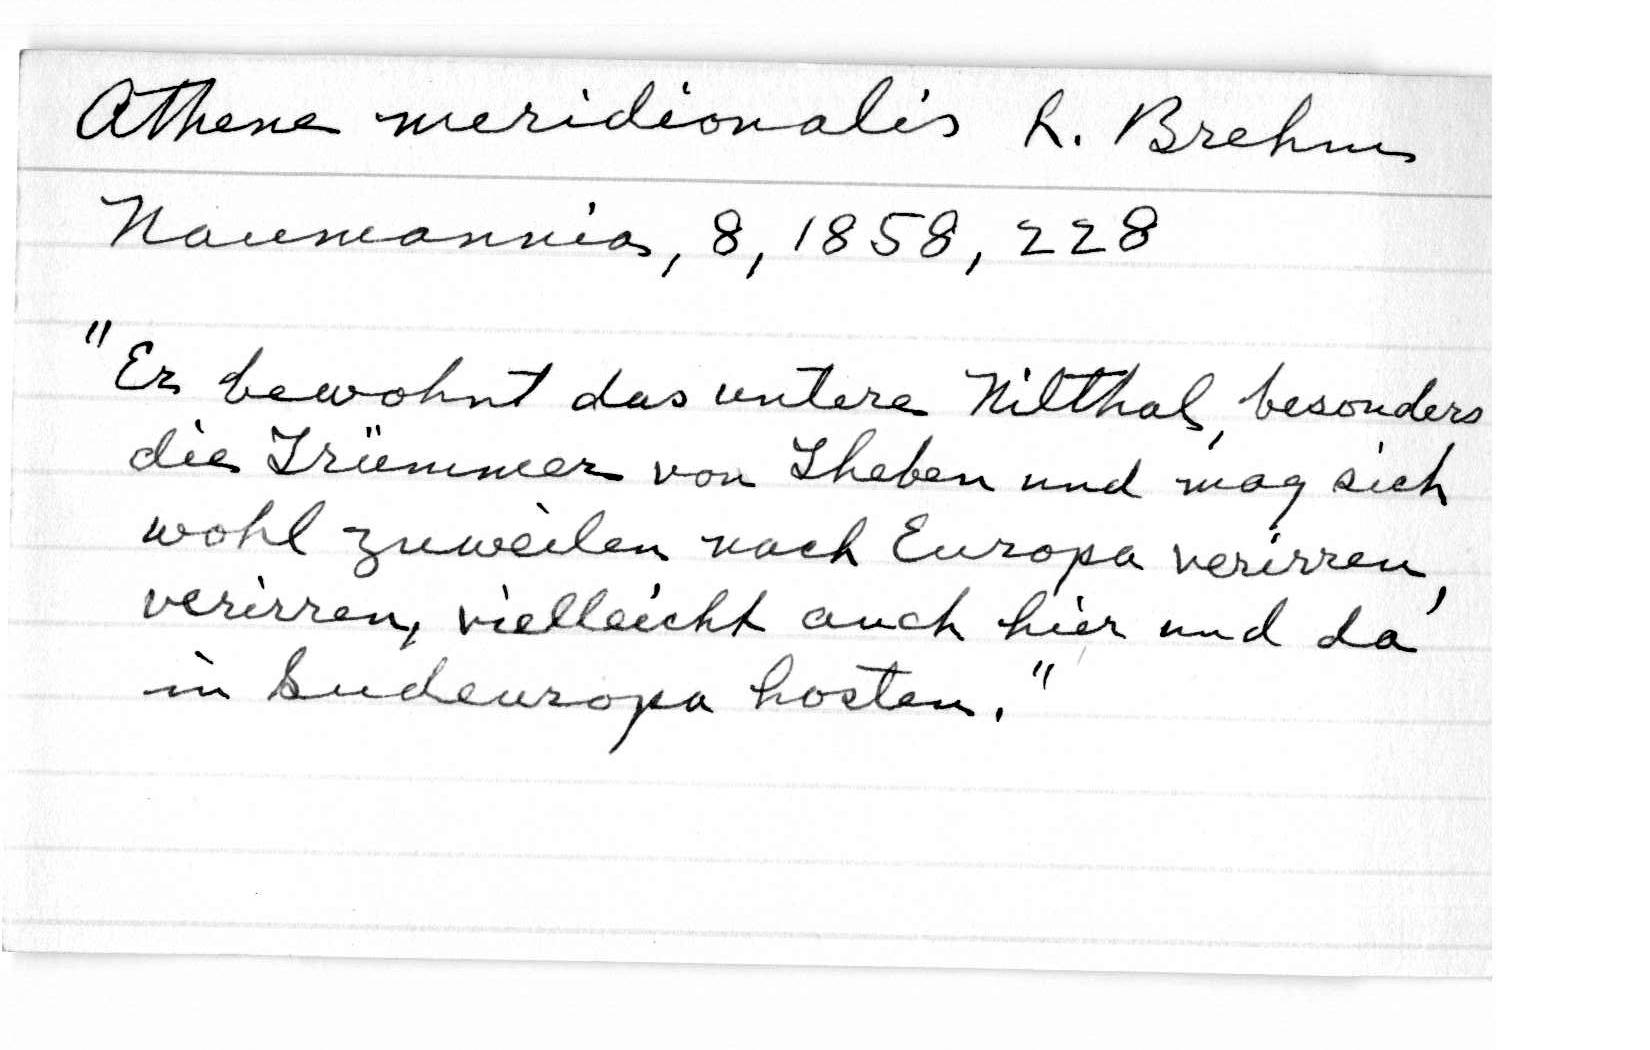 Athene meridionalis L. Brehm
Naumannia, 8, 1858, 228
"Er bewohnt das untere Nilthal, besonders
die Trümmer von Theben und mag sich
wohl zuweilen nach Europa verirren,
verirren, vielleicht auch hier und da
in Sudeuropa hosten."